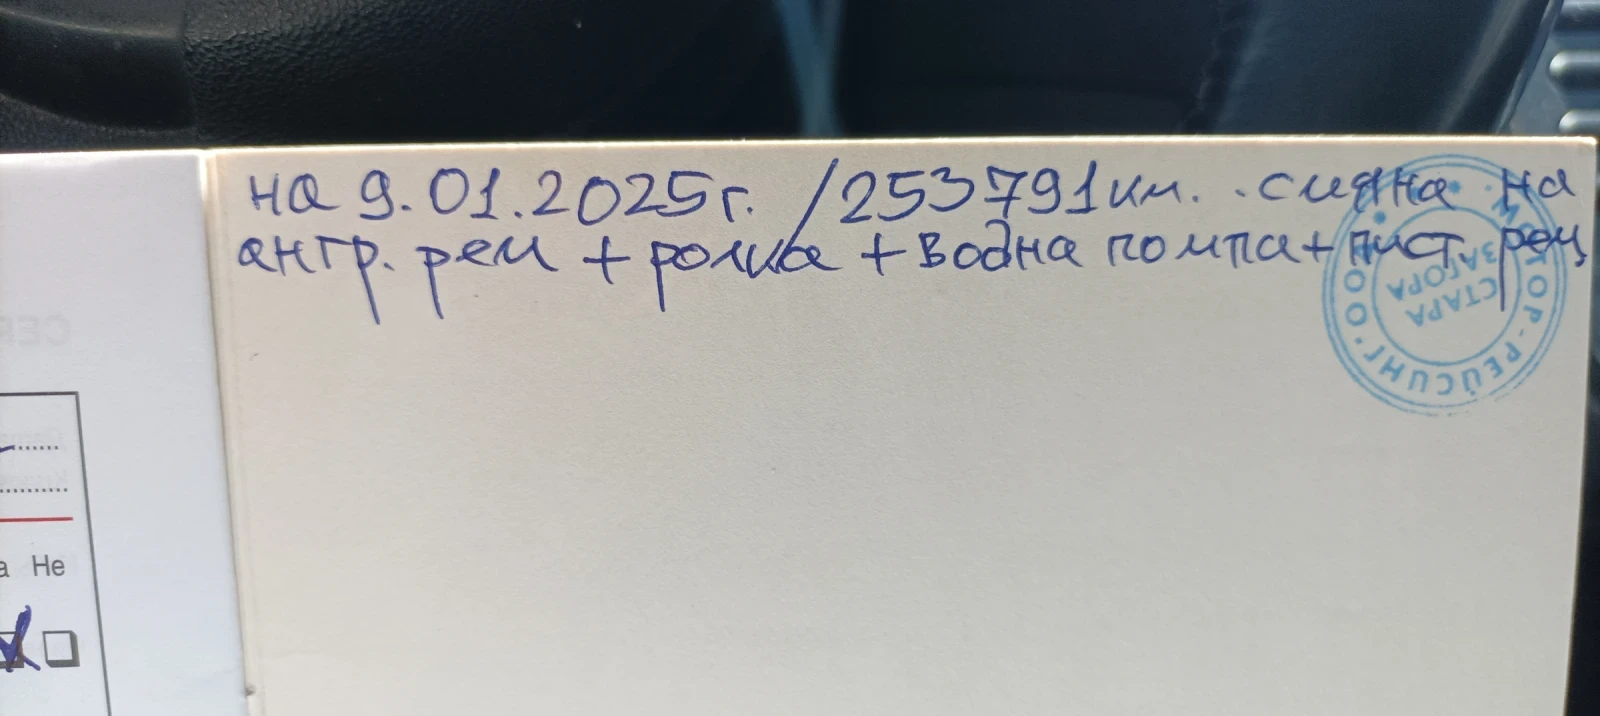 на 9.01.2025г. /253791км. смяна на
ангр. рем + ролка + водна помпа + пист. рем
СТАРА
ЗАГОРА
РЕЙСИНГ" ООД
а Не